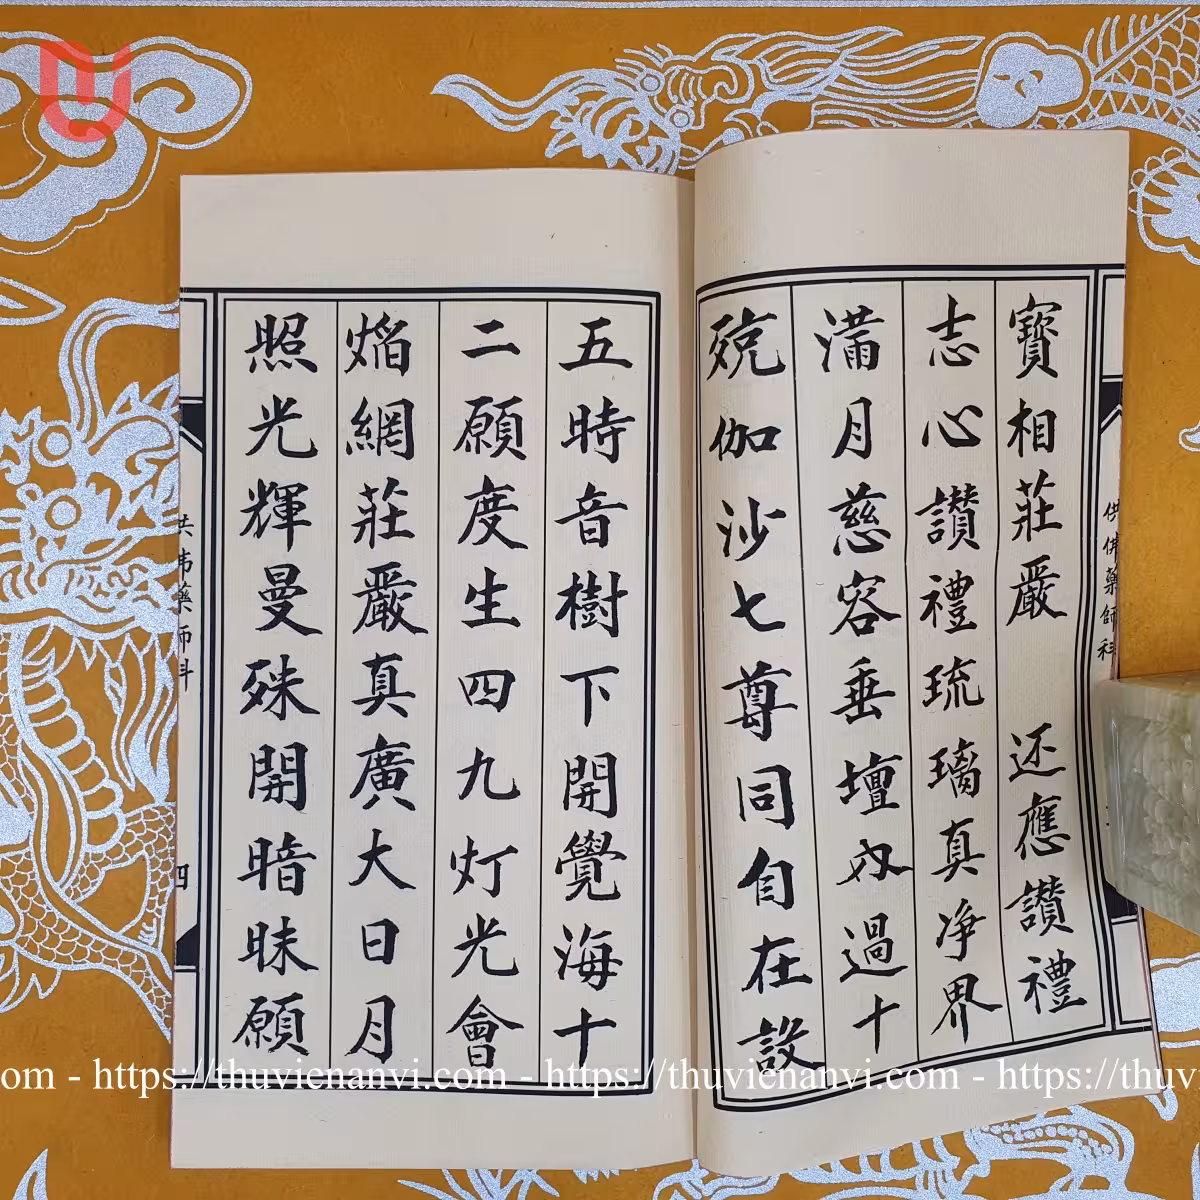 寶相莊嚴 还應讃禮
志心讃禮琉璃真净界
滿月慈容垂壇内過十
殑伽沙七尊同自在設
五時音樹下開覺海十
二願度生四九灯光會
焔網莊嚴真廣大日月
照光輝曼殊開暗昧願
供佛藥師科
四
om - https://thuvienanvi.com - https://thuvienanvi.com - https://thuv